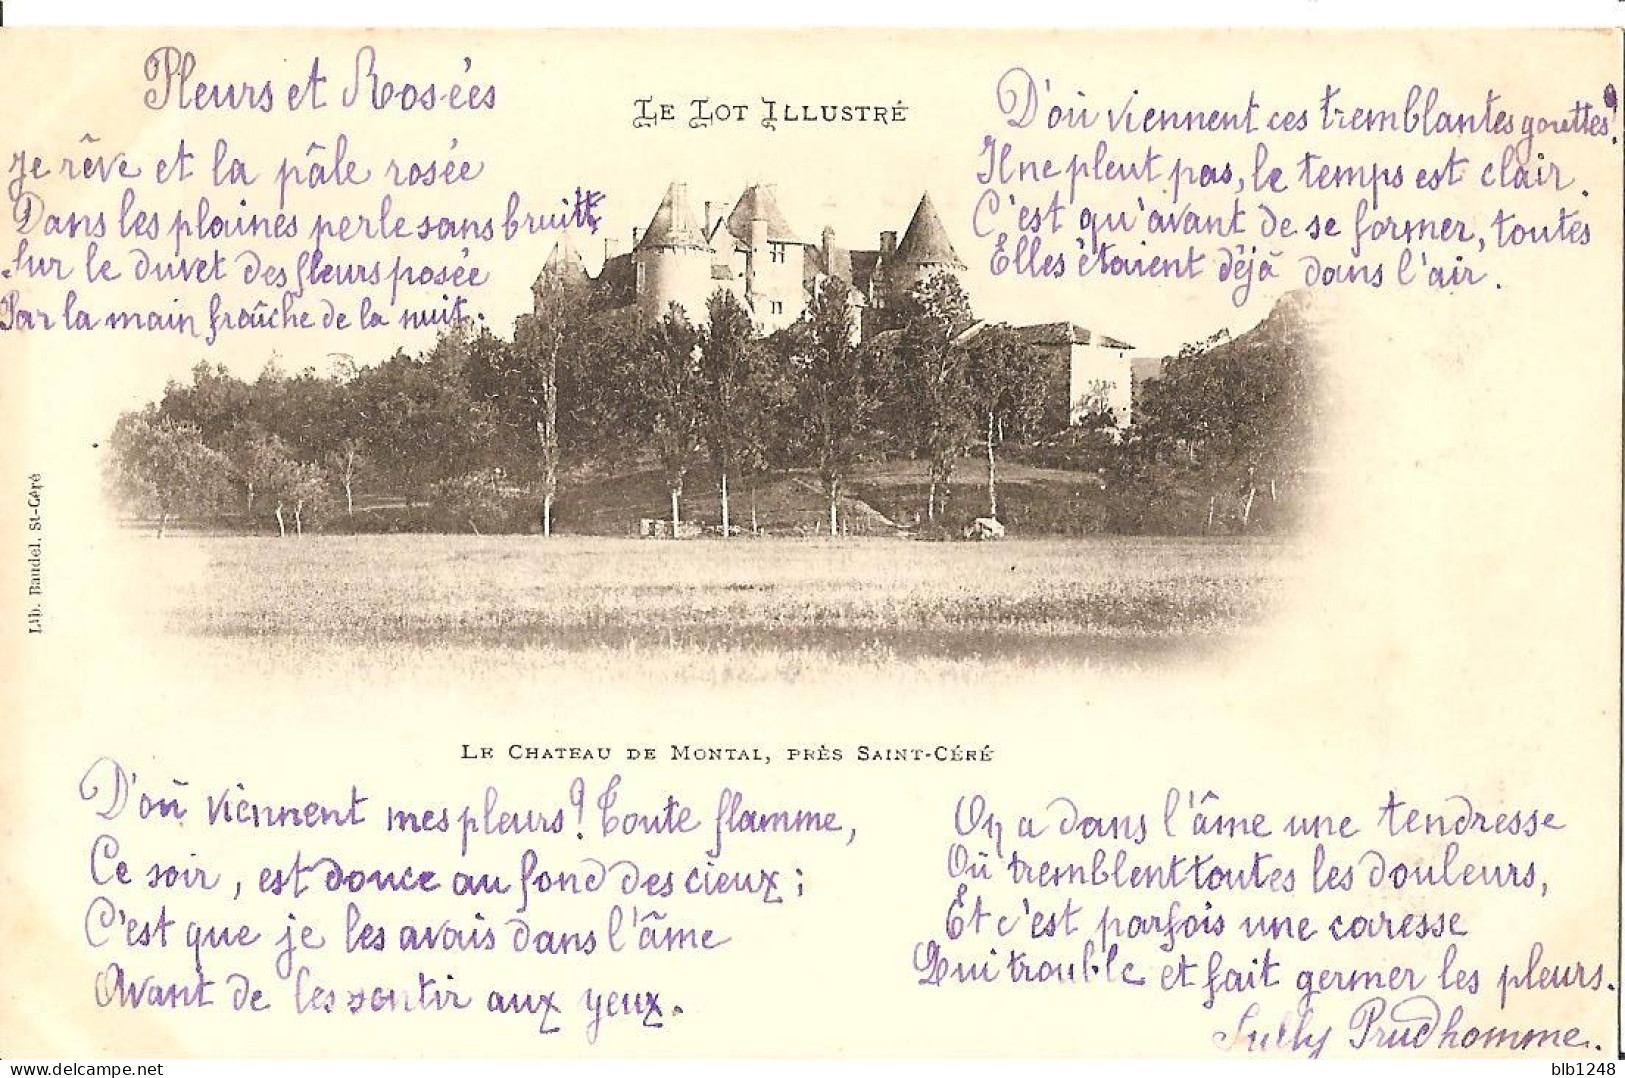 Pleurs et Rosées
Je rêve et la pâle rosée
Dans les plaines perle sans bruit
Sur le duvet des fleurs posée
Par la main fraîche de la nuit.
LE LOT ILLUSTRÉ
D'où viennent ces tremblantes gouttes?
Il ne pleut pas, le temps est clair.
C'est qu'avant de se former, toutes
Elles étaient déjà dans l'air.
Lib. Baudel, St-Céré
LE CHATEAU DE MONTAL, PRÈS SAINT-CÉRÉ
D'où viennent mes pleurs? Toute flamme,
Ce soir, est douce au fond des cieux;
C'est que je les avais dans l'âme
Avant de les sentir aux yeux.
On a dans l'âme une tendresse
Où tremblent toutes les douleurs,
Et c'est parfois une caresse
Qui trouble et fait germer les pleurs.
Sully Prudhomme.
delcampe.net
blb1248